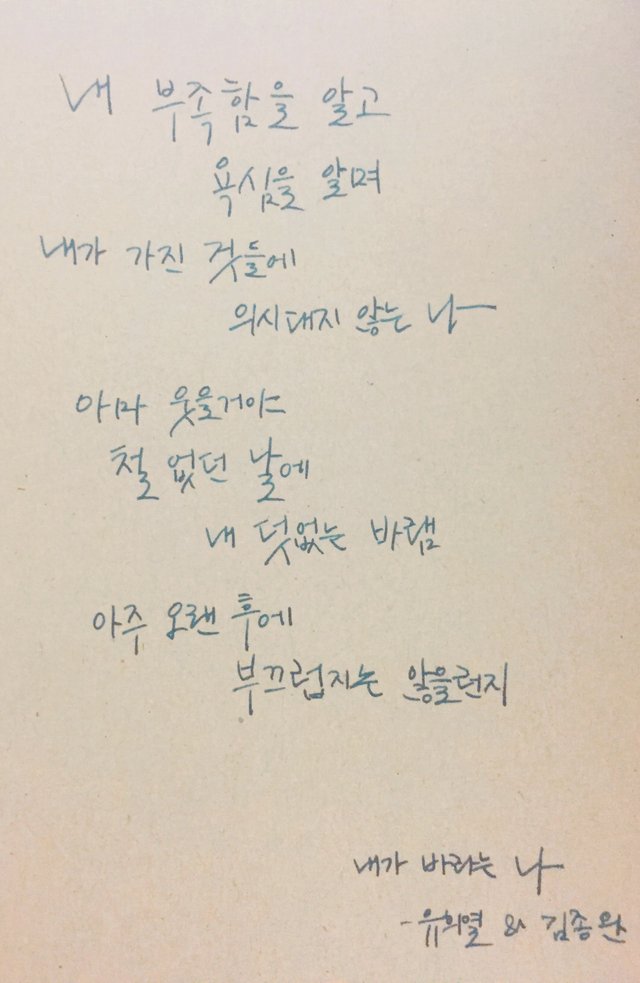 내 부족함을 알고
욕심을 알며
내가 가진 것들에
의시대지 않는 나
아마 웃을거야
철 없던 날에
내 덧없는 바램
아주 오랜 후에
부끄럽지는 않을런지
내가 바라는 나
-유희열 & 김종완